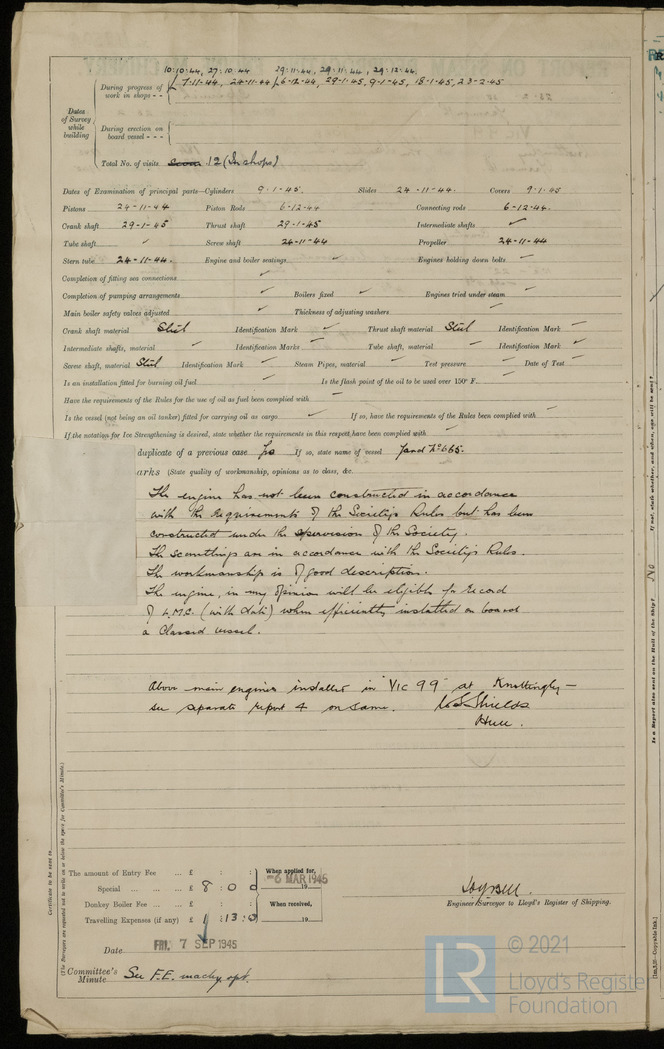 10·10·44, 27·10·44 29·11·44, 29·11·44, 29·12·44,
During progress of work in shops - - 7·11·44, 24·11·44, 6·12·44, 29·1·45, 9·1·45, 18·1·45, 23·2·45
Dates of Survey while building
During erection on board vessel - - -
Total No. of visits 12 (In shops)
Dates of Examination of principal parts—Cylinders 9·1·45. Slides 24·11·44. Covers 9·1·45
Pistons 24·11·44 Piston Rods 6·12·44 Connecting rods 6·12·44.
Crank shaft 29·1·45 Thrust shaft 29·1·45 Intermediate shafts ✓
Tube shaft ✓ Screw shaft 24·11·44 Propeller 24·11·44
Stern tube 24·11·44. Engine and boiler seatings ✓ Engines holding down bolts ✓
Completion of fitting sea connections ✓
Completion of pumping arrangements ✓ Boilers fixed ✓ Engines tried under steam ✓
Main boiler safety valves adjusted ✓ Thickness of adjusting washers ✓
Crank shaft material Steel Identification Mark ✓ Thrust shaft material Steel Identification Mark ✓
Intermediate shafts, material ✓ Identification Marks ✓ Tube shaft, material ✓ Identification Mark ✓
Screw shaft, material Steel Identification Mark ✓ Steam Pipes, material ✓ Test pressure ✓ Date of Test ✓
Is an installation fitted for burning oil fuel ✓ Is the flash point of the oil to be used over 150° F. ✓
Have the requirements of the Rules for the use of oil as fuel been complied with ✓
Is the vessel (not being an oil tanker) fitted for carrying oil as cargo ✓ If so, have the requirements of the Rules been complied with ✓
If the notation for Ice Strengthening is desired, state whether the requirements in this respect have been complied with ✓
duplicate of a previous case If so, state name of vessel Yard No 665.
arks (State quality of workmanship, opinions as to class, &c.
The engine has not been constructed in accordance
with the requirements of the Society's Rules but has been
constructed under the supervision of the Society.
The scantlings are in accordance with the Society's Rules.
The workmanship is of good description.
The engine, in my opinion will be eligible for record
of L.M.C. (with date) when efficiently installed on board
a Classed vessel.
Above main engines installed in "VIC 99" at Knottingley —
see separate report 4 on same. Shields
Hull.
The amount of Entry Fee ... £ : :
Special ... ... ... £ 8 : 0 : 0
Donkey Boiler Fee ... ... £ : :
Travelling Expenses (if any) £ 1 : 13 : 0
When applied for,
6 MAR 1945
19
When received,
19
Engineer Surveyor to Lloyd's Register of Shipping.
Date FRI. 7 SEP 1945
Committee's Minute See F.E. machy rpt.
Certificate to be sent to
(The Surveyors are requested not to write on or below the space for Committee's Minute.)
Is a Report also sent on the Hull of the Ship? NO
If not, state whether, and when, one will be sent?
© 2021
Lloyd's Register
Foundation
LR